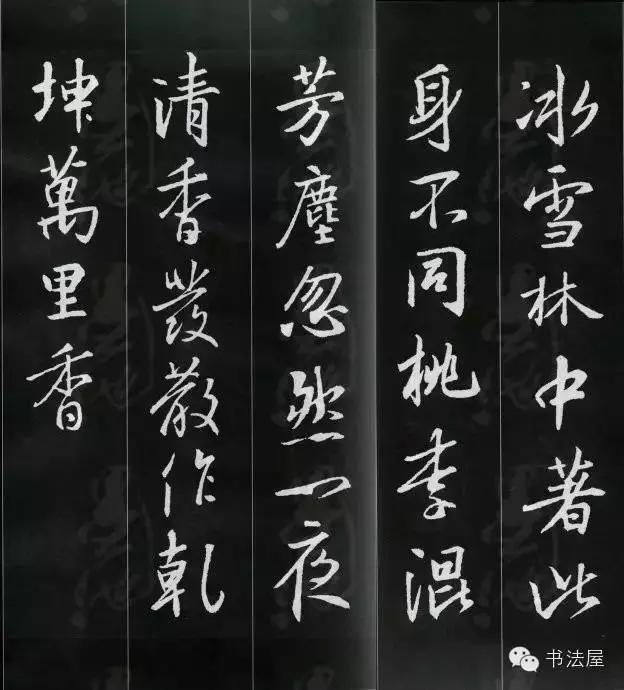 冰雪林中著此
身不同桃李混
芳塵忽然一夜
清香發散作乾
坤萬里香
书法屋